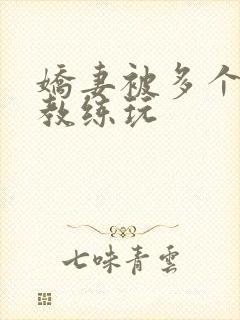 嬌妻被多个
教练玩
七味青雲